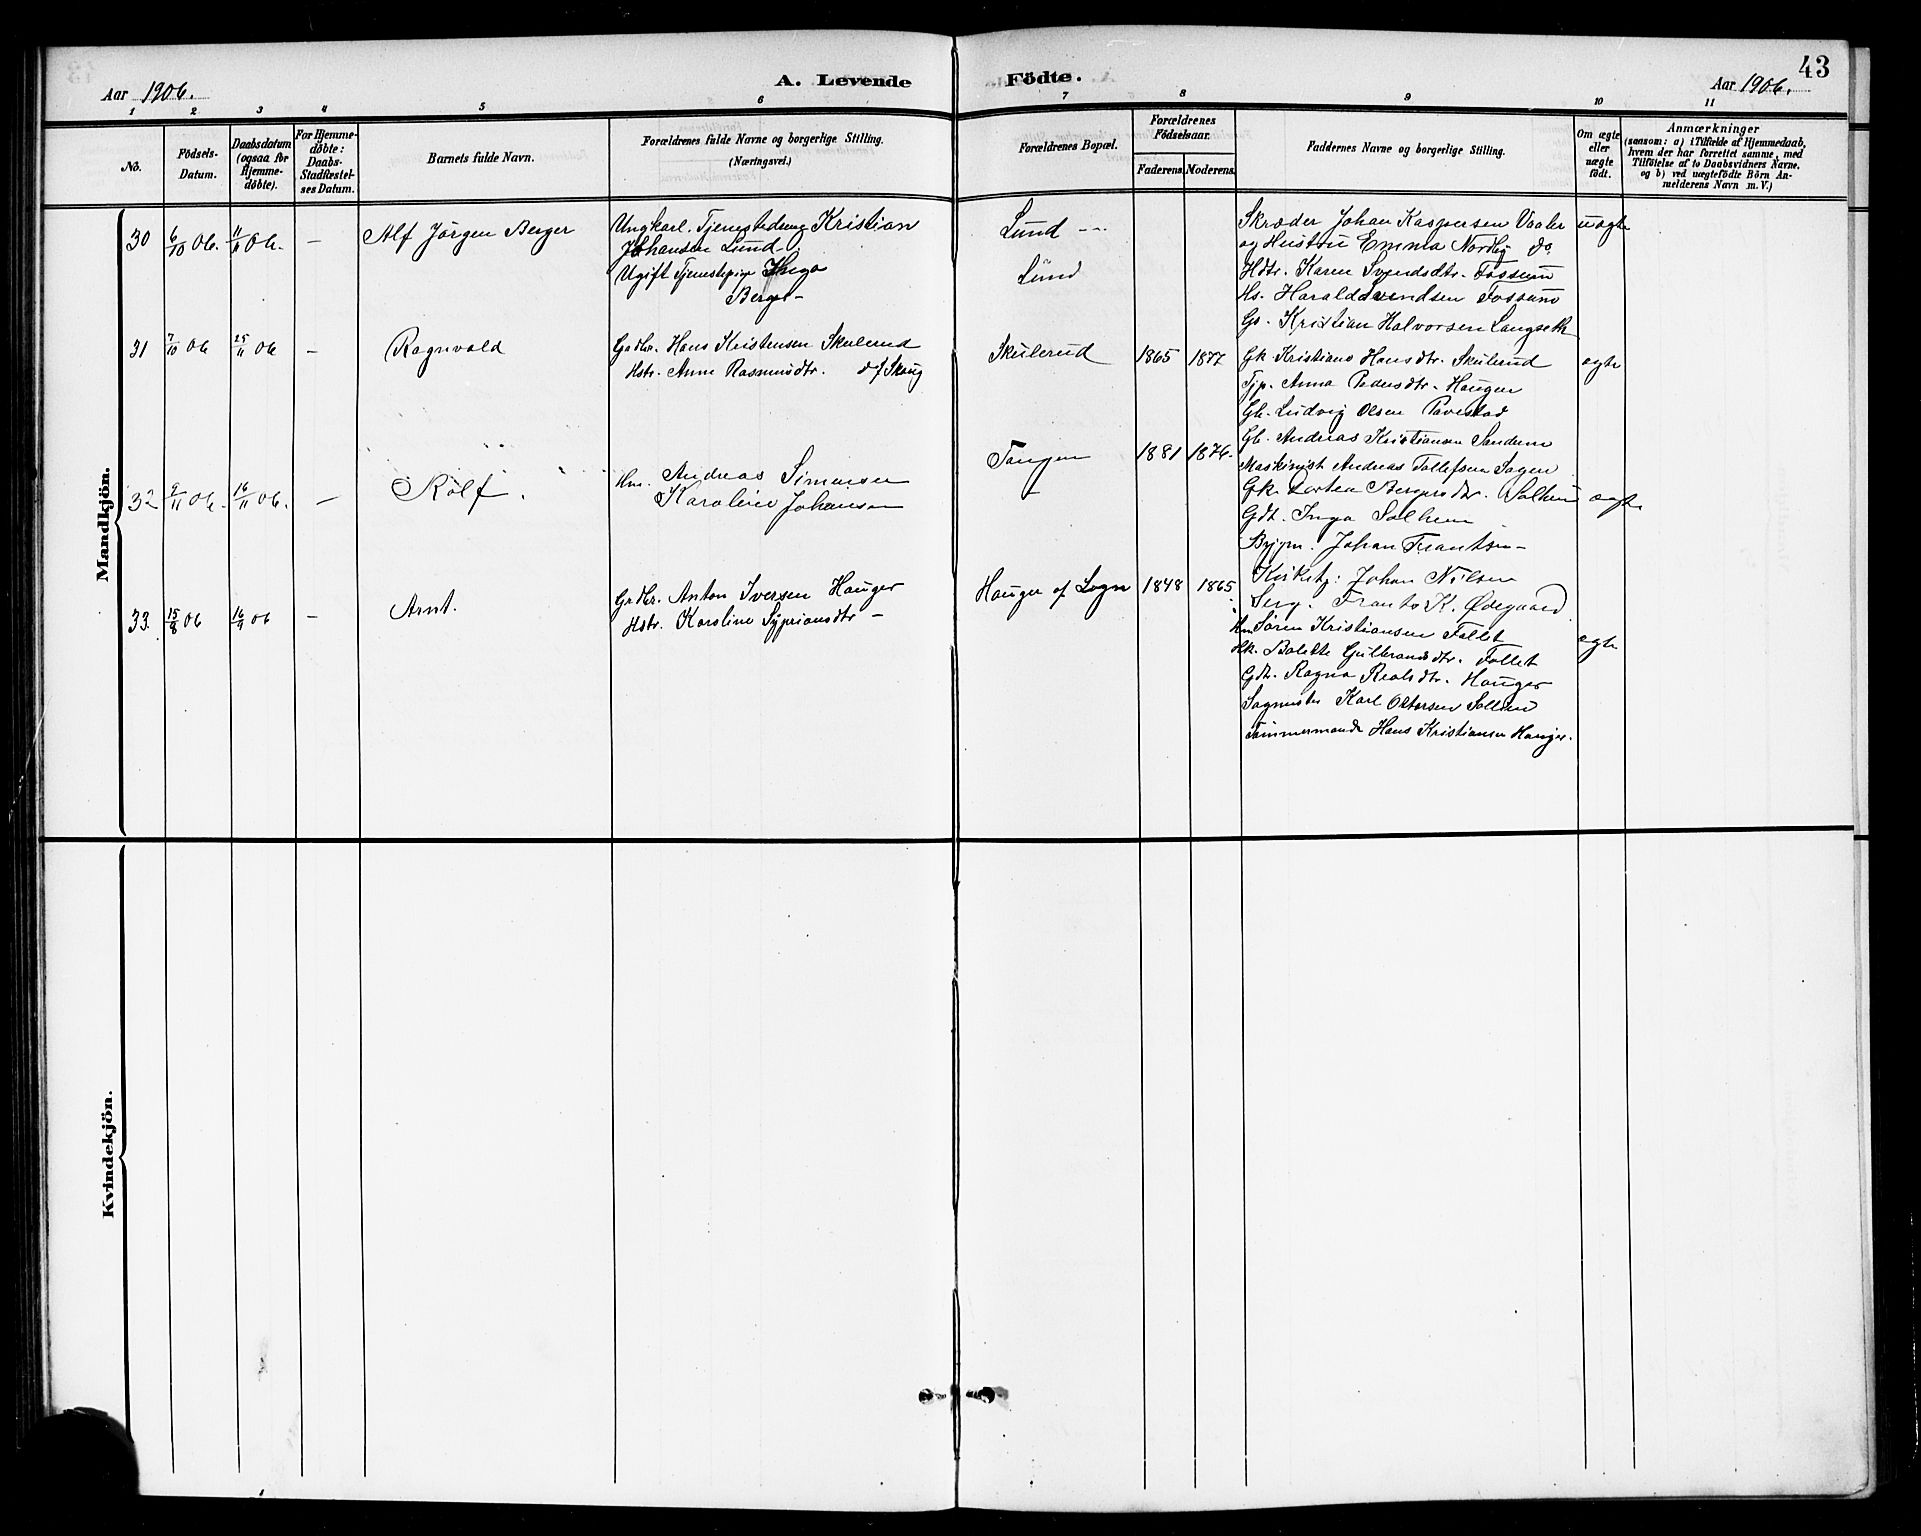 43
Aar 1906.
A. Levende Födte.
Aar 1906.
1 2 3 4 5 6 7 8 9 10 11
No.
Födsels-Datum.
Daabsdatum (ogsaa for Hjemme-döbte).
For Hjemme-döbte: Daabs-Stadfæstel-ses Datum.
Barnets fulde Navn.
Forældrenes fulde Navne og borgerlige Stilling. (Næringsvei.)
Forældrenes Bopæl.
Forældrenes Födselsaar.
Faderens Moderens
Faddernes Navne og borgerlige Stilling.
Om ægte eller uægte födt.
Anmærkninger
(saasom: a) i Tilfælde af Hjemmedaab,
hvem der har forrettet samme, med
Tilföielse af to Daabsvidners Navne.
og b) ved uægtefödte Börn An-
melderens Navn m. V.)
Mandkjön.
30 6/10 06. 11/11 06. — Alf Jörgen Berger
Ungkarl. Tjenestedreng Kristian
Johansen Lund
Ugift Tjenestepige Inga
Berger
Lund
Lund
Skræder Johan Kaspersen Vaaler
og Hustru Emma Nordby do
Hdtr. Karen Svendsdtr. Fossum
Hs. Harald Svendsen Fossum
Gs. Kristian Halvorsen Langseth
uægte
31 7/10 06 25/11 06 — Ragnvald
Grdbr. Hans Kristensen Skulerud
Hstr. Anne Rasmusdtr. af Skaug
Skulerud 1865 1877
Gk. Kristiane Hansdtr. Skulerud
Tjp. Anna Pedersdtr. Haugen
Gb. Ludvig Olsen
Gb. Andreas Kristiansen
Maskinist Andreas Tollefsen Sagen
ægte
32 9/11 06. 16/11 06. — Rolf.
Hm. Andreas Simensen
Karoline Johansen
Tangen 1881 1876.
Gk. Dortea Bergersdtr. Solhem
Gdt. Inga Solhem
Bygm. Johan Frantsen
Kirketj: Johan Nilsen
Serg. Frants K. Ödegaard
ægte
33. 15/8 06 16/9 06 — Arnt.
Grdbr. Anton Iversen Hauger
Hstr. Karoline Syprionsdtr
Hauger af Sogn 1848 1865
Hm Sören Kristiansen Follet
Hk. Bolette Gulbrandsdtr. Follet
Gdt. Ragna Hauger
Sagmester Karl Ottersen
Tömmermand Hans Kristiansen Hauger.
ægte
Kvindekjön.